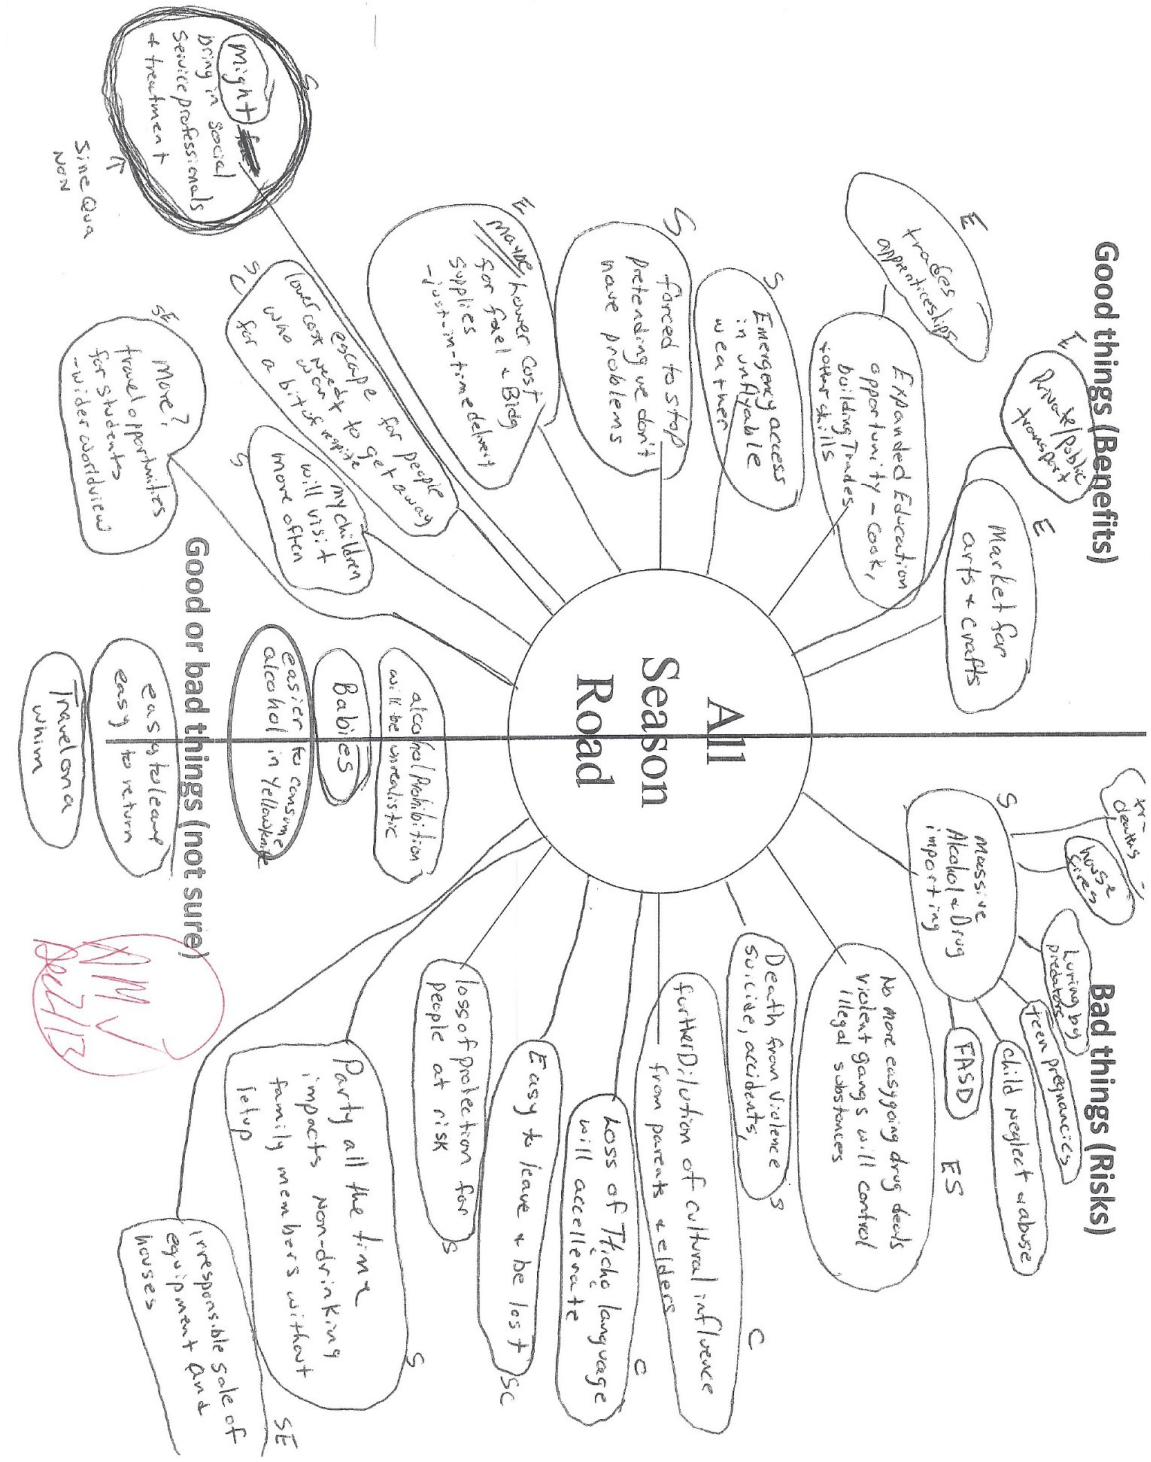 Good things (Benefits)
E
Private/public
transport
E
Market for
arts & crafts
E
trades
apprenticeships
Expanded Education
opportunity - cook,
building Trades
+ other skills
S
Emergency access
in unflyable
weather
S
forced to stop
pretending we don't
have problems
E
Maybe Lower Cost
for fuel & Bldg
supplies
- just-in-time delivery
S
Might
bring in social
service professionals
& treatment
Sine Qua
Non
S
C
escape for people
lower cost
who want to get away
for a bit of respite
S
my children
will visit
more often
SE
More?
travel opportunities
for students
- wider worldview
All
Season
Road
Bad things (Risks)
deaths
house
fires
S
Massive
Alcohol & Drug
importing
Luring by
predators
teen pregnancies
child neglect & abuse
FASD
ES
No more easygoing drug deals
violent gangs will control
illegal substances
Death from Violence
suicide, accidents,
S
further Dilution of cultural influence
from parents & elders
C
Loss of Tłı̨chǫ language
will accellerate
C
Easy to leave & be lost
SC
loss of protection for
people at risk
S
Party all the time
impacts Non-drinking
family members without
letup
S
irresponsible sale of
equipment and
houses
SE
Good or bad things (not sure)
alcohol Prohibition
will be unrealistic
Babies
easier to consume
alcohol in Yellowknife
easy to leave
easy to return
Travel on a
whim